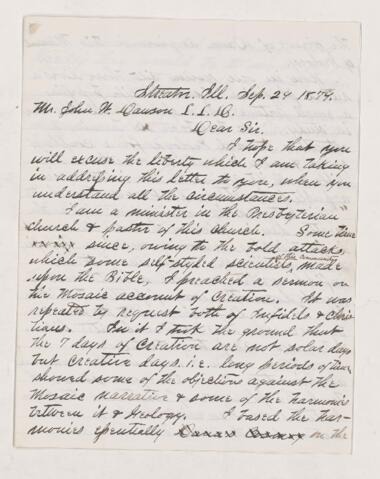 Streator, Ill. Sep. 24 1879.
Mr. John W. Dawson L.L.D.
Dear Sir.
I hope that you
will excuse the liberty which I am taking
in addressing this letter to you, when you
understand all the circumstances.
I am a minister in the Presbyterian
church & pastor of this church. Some time
since, owing to the bold attacks,
which some self-styled scientists made
of this community
upon the Bible, I preached a sermon on
the Mosaic account of Creation. It was
repeated by request both of infidels & Chris
tians. In it I took the ground that
the 7 days of Creation are not solar days
but creative days. i.e. long periods of time
showed some of the objections against the
Mosaic narrative & some of the harmonies
between it & Geology. I based the har-
monies essentially on the